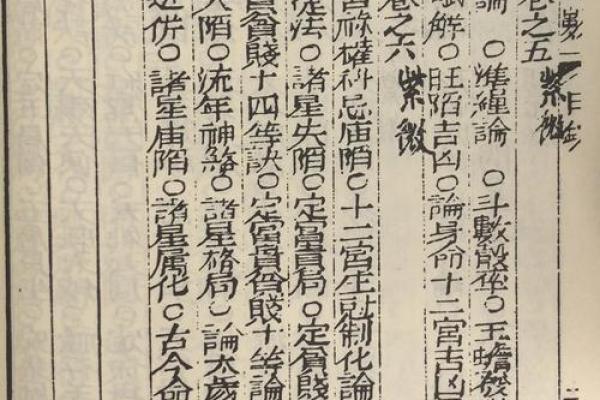 數一目錄
卷之五 紫微
論○準繩論○斗數骰㑹○玉蟾發
賦解○旺陷吉凶○論身命十二宮吉凶
卷之六 紫微
祿權科忌庙陷○十二宮生尅制化論
定法○諸星失陷○定富貴局○定貧賤
貴貧賤十四等訣○定富貴貧賤十等論
陌○流年神絡○諸星格局○論太歲
併○諸星庙陌○諸星属化○古今命